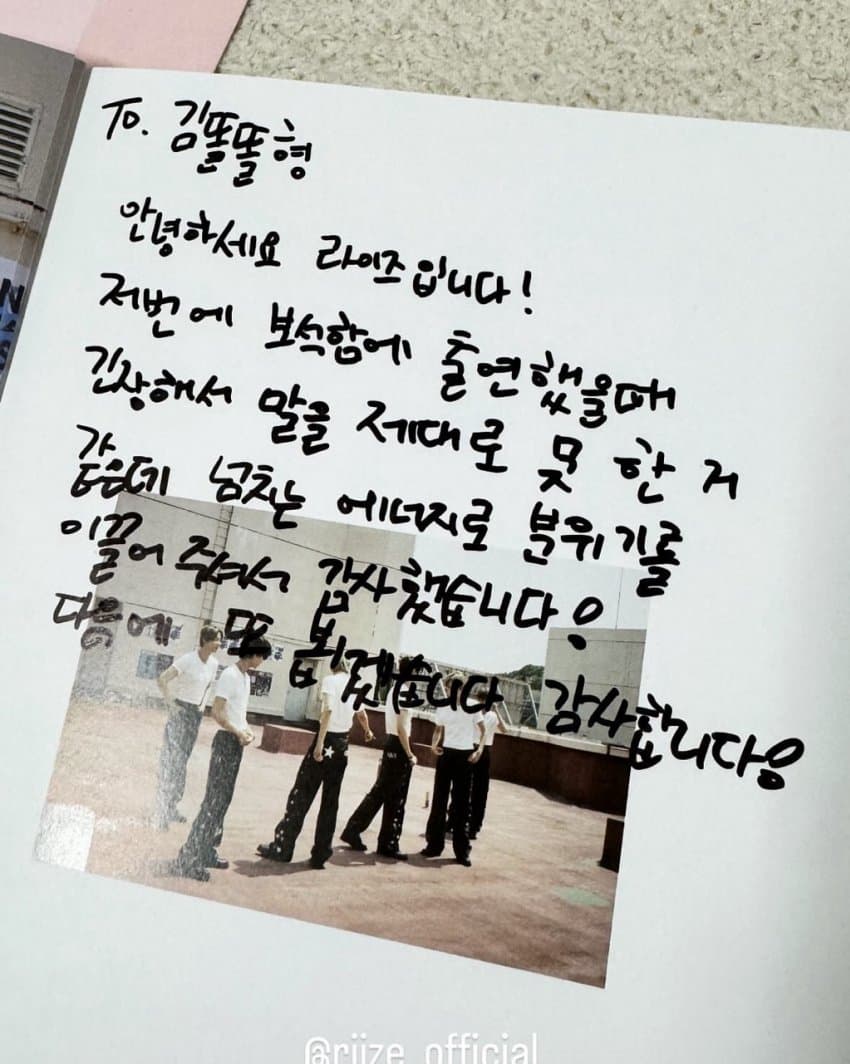 To. 김똘똘형
안녕하세요 라이즈입니다!
저번에 보석함에 출연했을때
긴장해서 말을 제대로 못 한 거
같은데 넘치는 에너지로 분위기를
이끌어 주셔서 감사했습니다!
다음에 또 뵙겠습니다 감사합니다!
@riize_official